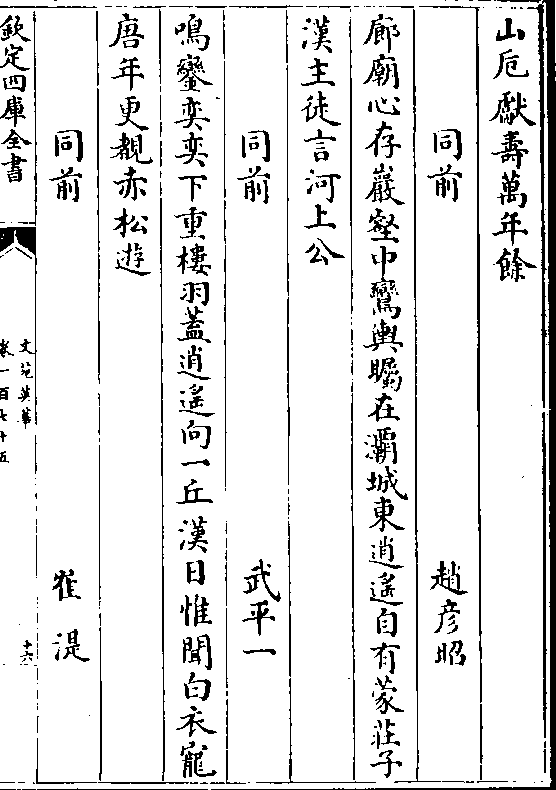 山卮獻壽萬年餘
同前 趙彦昭
廊廟心存巖壑中鸞輿矚在灞城東逍遙自有蒙莊子
漢主徒言河上公
同前 武平一
鳴鑾奕奕下重樓羽蓋逍遙向一丘漢日惟聞白衣寵
唐年更覩赤松遊
同前 崔湜
欽定四庫全書 文苑英華 卷一百七十五 十六